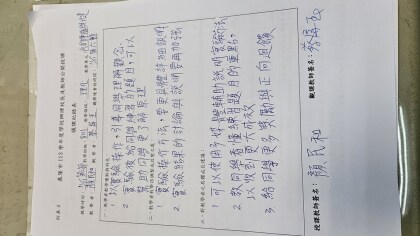 附表3
基隆市113學年度學校辦理校長及教師公開授課
議課紀錄表
一、教學者教學優點與特色:
1 以實驗操作,引導同學理解觀念
2 實驗後給同學練習的題目,可以
幫助同學更了解原理
二、教學者教學待調整或改變之處:
1 實驗操作方法,帶更具體詳細說明
2 實驗結果的討論與說明要再加強
三、對教學者之具體成長建議:
1 可以使用多媒體輔助說明實驗方法
2 教同學看懂練習題目的重點,
以收到更大成效
3 給同學更多獎勵與正向回饋
授課教師簽名: 顏民和
觀課教師簽名: